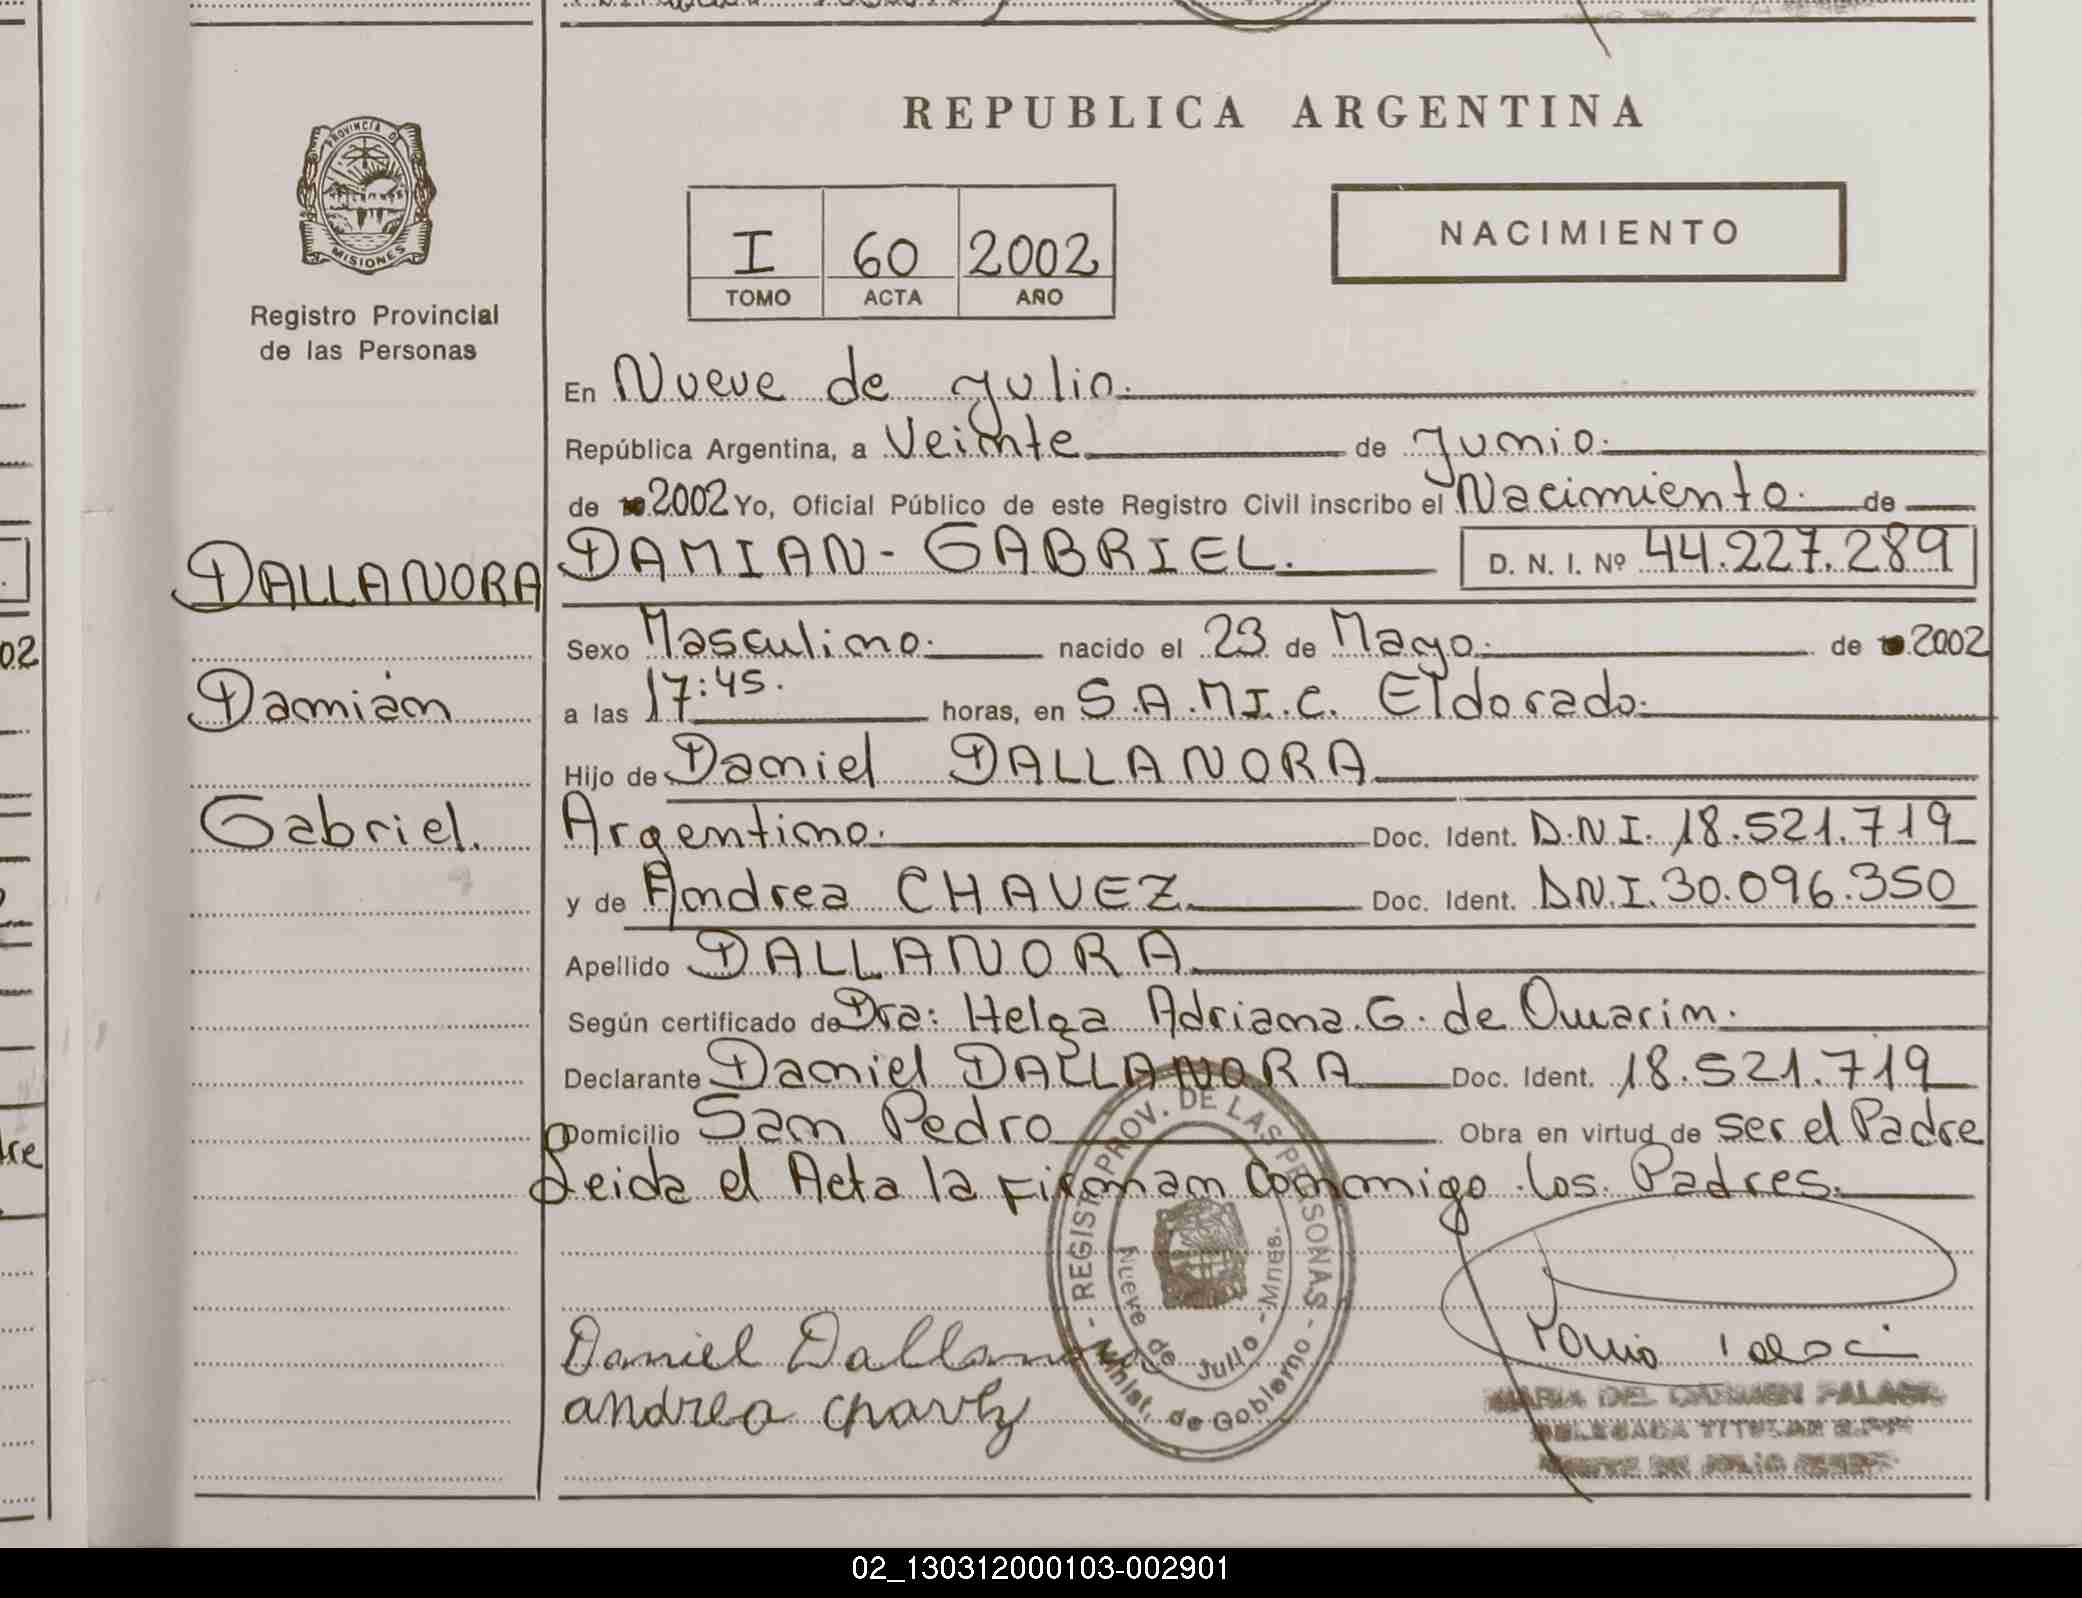 REPUBLICA ARGENTINA
PROVINCIA DE
MISIONES
Registro Provincial
de las Personas
I 60 2002
TOMO ACTA AÑO
NACIMIENTO
En Nueve de Julio.
República Argentina, a Veinte de Junio.
de 2002 Yo, Oficial Público de este Registro Civil inscribo el Nacimiento. de
DALLANORA
Damián
Gabriel.
DAMIAN - GABRIEL. D. N. I. Nº 44.227.289
Sexo Masculino. nacido el 23 de Mayo. de 2002
a las 17:45. horas, en S.A.M.I.C. Eldorado.
Hijo de Daniel DALLANORA
Argentino. Doc. Ident. D.N.I. 18.521.719
y de Andrea CHAVEZ Doc. Ident. D.N.I. 30.096.350
Apellido DALLANORA
Según certificado de Dra: Helga Adriana G. de
Declarante Daniel DALLANORA Doc. Ident. 18.521.719
Domicilio San Pedro Obra en virtud de ser el Padre
Leida el Acta la Firman Conmigo los Padres.
- REGIST. PROV. DE LAS PERSONAS -
Minist. de Gobierno
Nueve de Julio - Mnes.
Daniel
andrea chavez
MARIA DEL CARMEN
DELEGADA TITULAR
02
02_130312000103-002901